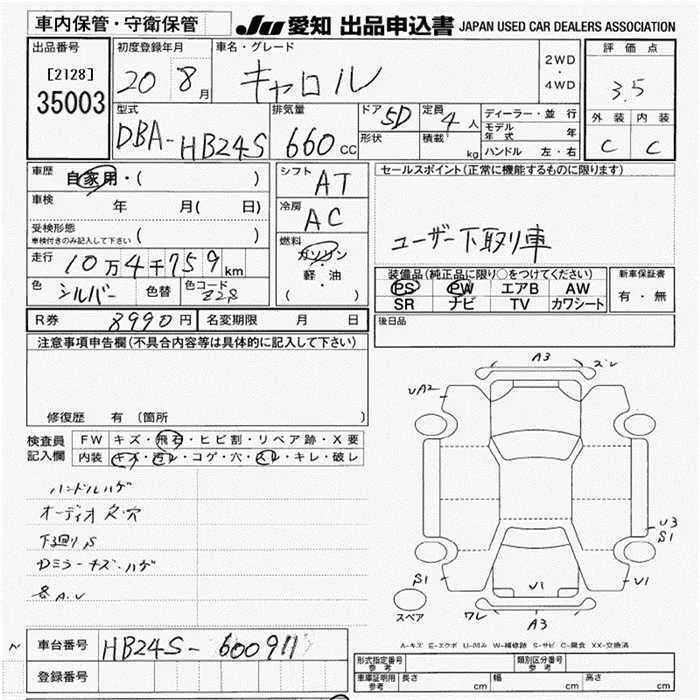 車内保管・守衛保管
JU 愛知 出品申込書 JAPAN USED CAR DEALERS ASSOCIATION
出品番号
[2128]
35003
初度登録年月
20 8月
車名・グレード
キャロル
2WD
・
4WD
評価点
3.5
外装 内装
C C
型式
DBA-HB24S
排気量
660cc
ドア 5D
形状
定員 4人
積載 kg
ディーラー・並行
モデル年式 年
ハンドル 左・右
車歴
自家用・( )
車検 年 月( 日)
受検形態
車検付きのみ記入して下さい ( )
走行
10万4千759km
色 シルバー 色替 色コード Z2S
シフト AT
冷房 AC
燃料
ガソリン
・
軽・油
( )
セールスポイント(正常に機能するものに限ります)
ユーザー下取り車
装備品(純正品に限り○をつけてください)
PS PW エアB AW
SR ナビ TV カワシート
新車保証書
有・無
R券 8990円 名変期限 月 日
後日品
注意事項申告欄(不具合内容等は具体的に記入して下さい)
修復歴 有 (箇所 )
検査員記入欄
FW キズ・飛石・ヒビ割・リペア跡・X要
内装 キズ・汚レ・コゲ・穴・スレ・キレ・破レ
ハンドルハゲ
オーディオ 穴
下廻りS
ドミラーキズ・ハゲ
A.U
A3
ズレ
UA2
U3
S1
S1
U1
U1
ワレ
A3
スペア
A-キズ E-エクボ U-凹み W-補修跡 S-サビ C-腐食 XX-交換済
車台番号 HB24S-600911
登録番号
形式指定番号 参考
類別区分番号 参考
車庫証明用 参考
長さ cm 幅 cm 高さ cm